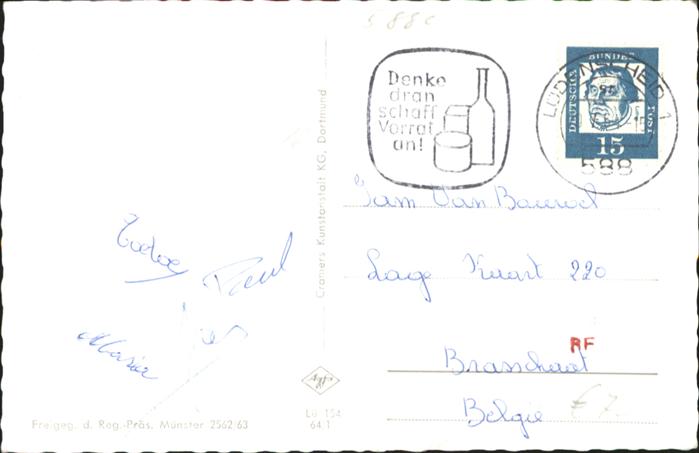 5880
Denke
dran
schaff
Vorrat
an!
LÜDENSCHEID 1
588
DEUTSCHE BUNDESPOST
15
Fam Van Bauwel
Lage Kaart 220
RF
Brasschaat
België
€ 7.
Paul
Maria
Cramers Kunstanstalt KG, Dortmund
Agfa
Freigeg. d. Reg.-Präs. Münster 2562/63
Lü 154
64.1